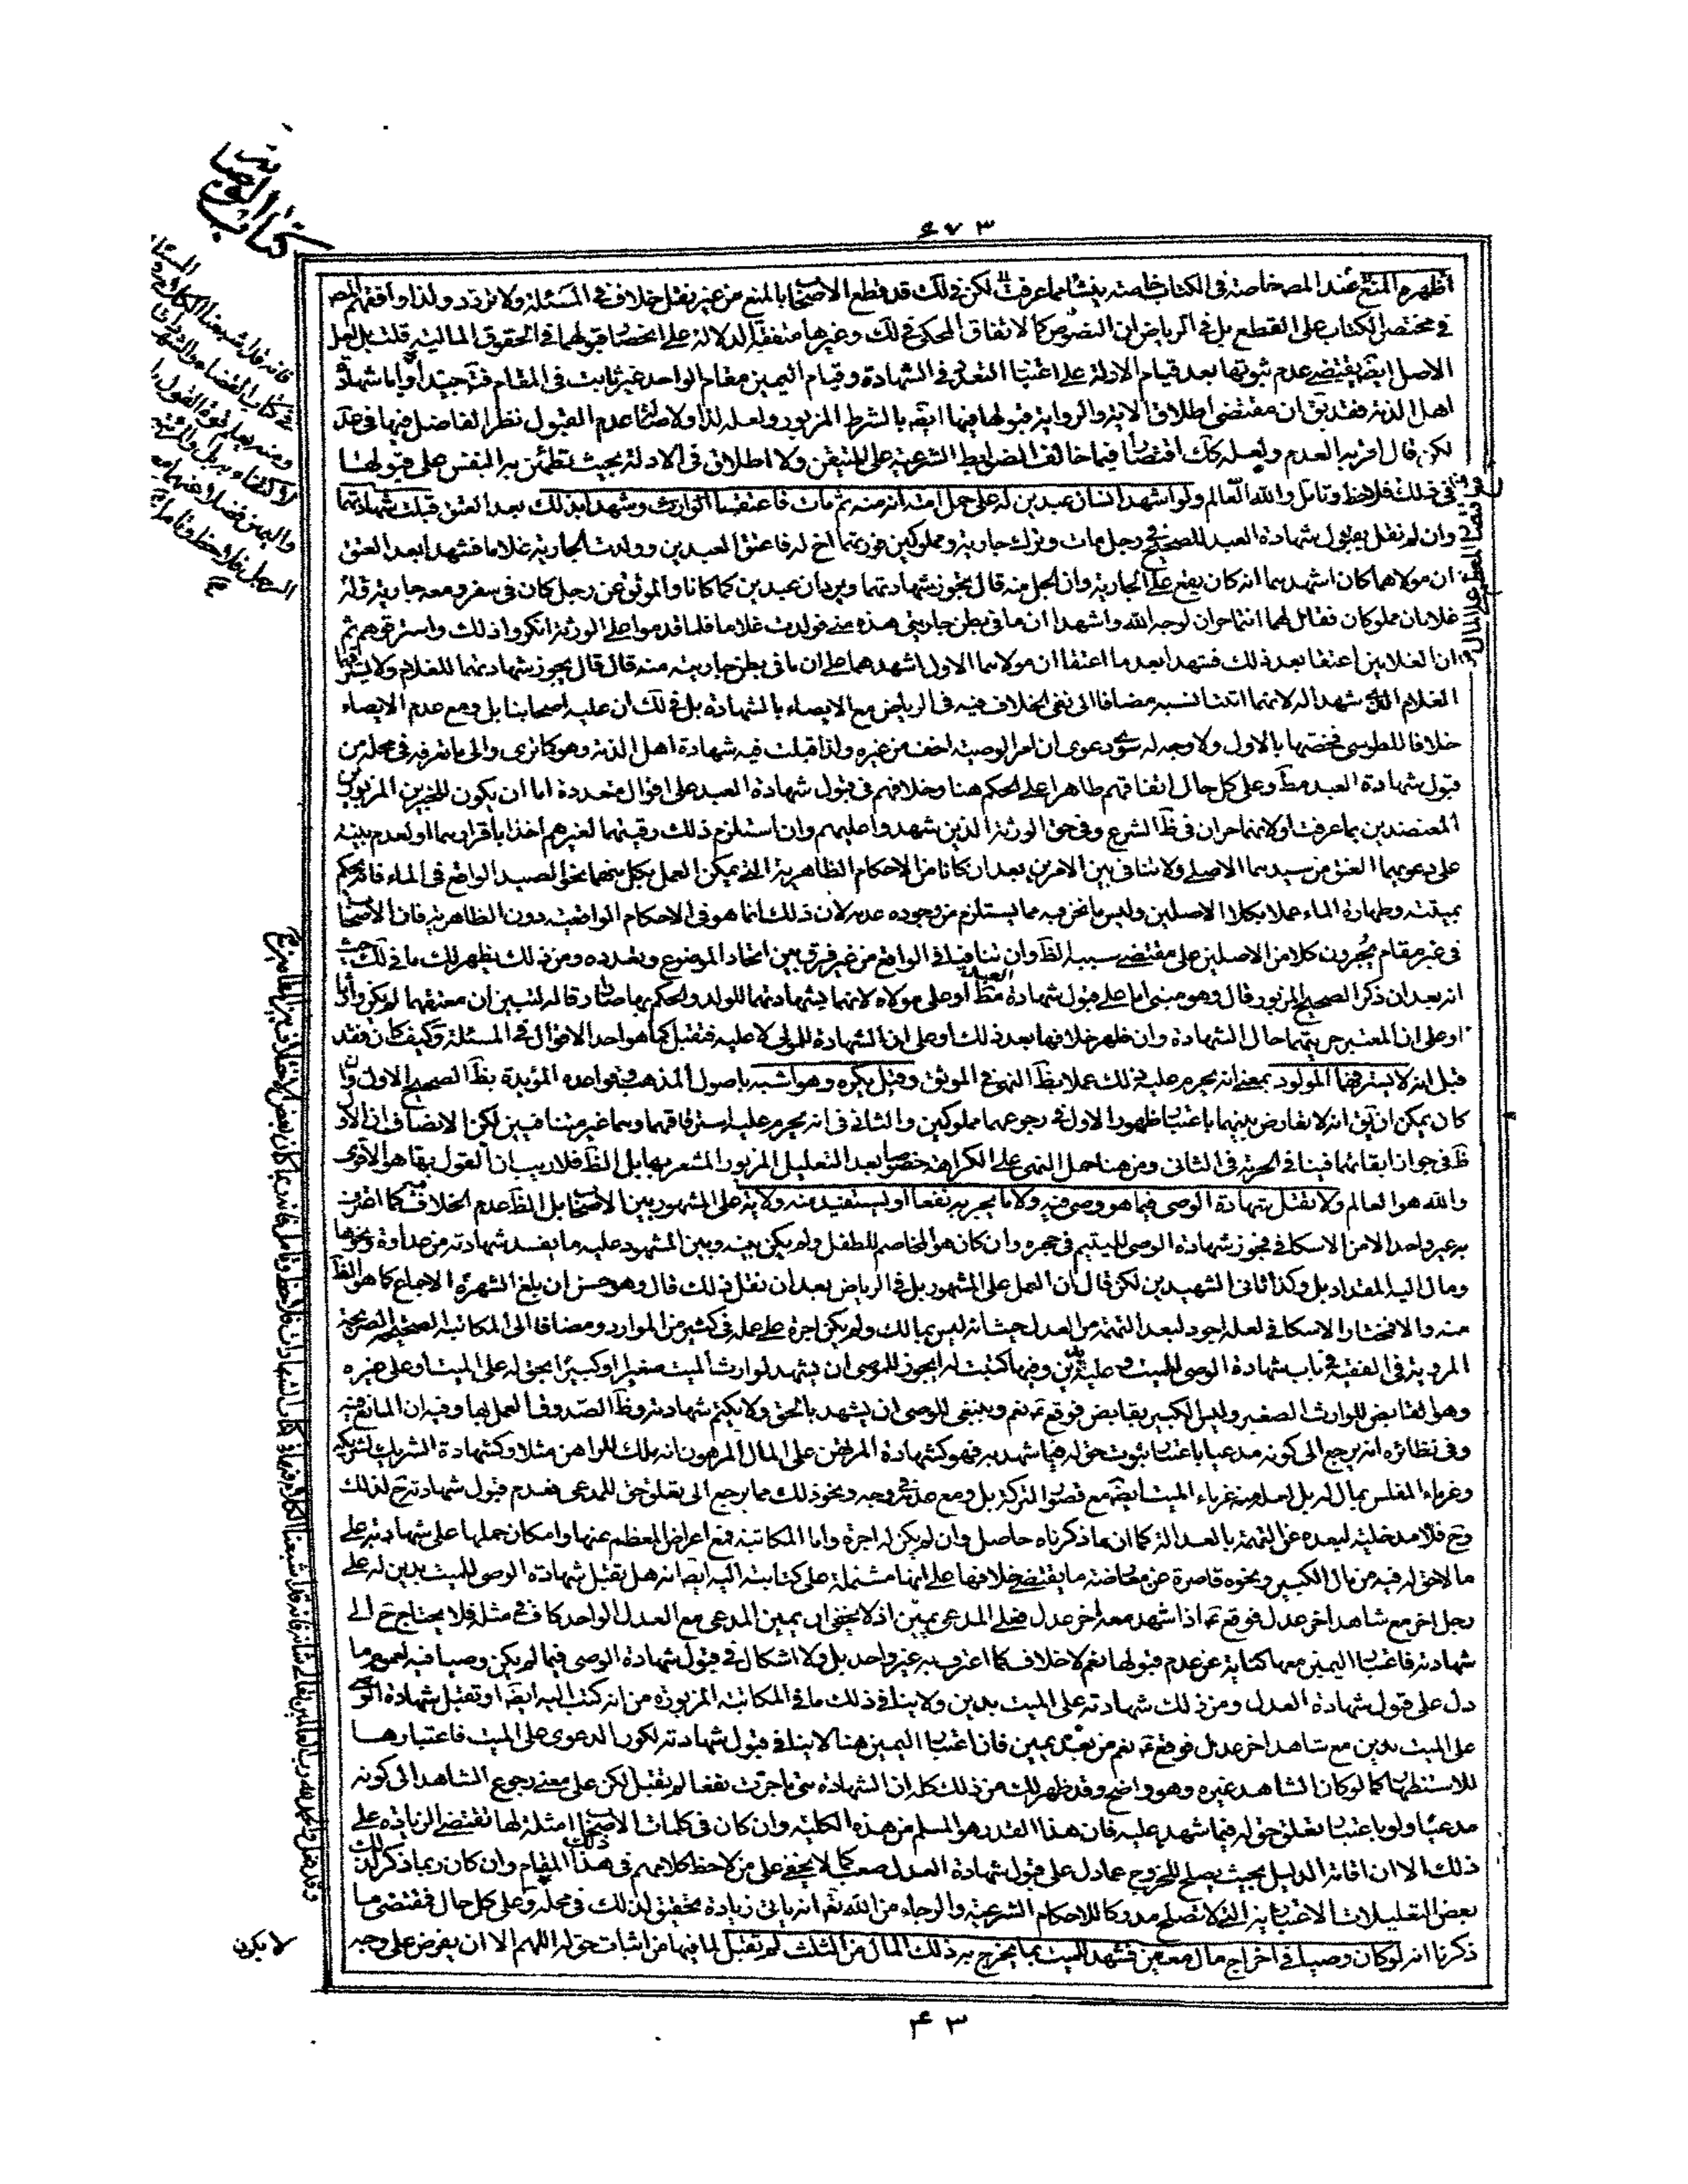 كتاب الوصايا
٦٧٣
أظهره المنع عند المصـ خاصة فى الكتاب خاصة ينشا مما عرفت لكن فى لك قد قطع الاصحاب بالمنع من غير نقل خلاف فى المسئلة ولا تردد ولذا وافقهم المصـ
فى مختصر الكتاب على القطع بل فى الرياض ان النصوص كالاتفاق المحكى فى لك وغيرها متفقة الدلالة على اختصاص قبولهما فى الحقوق المالية قلت بل لعل
الاصل ايضا يقتضى عدم ثبوتها بعد قيام الادلة على اعتبار التعدد فى الشهادة وقيام اليمين مقام الواحد غير ثابت فى المقام فتـ جيدا واما شهادة
اهل الذمة فقد يق ان مقتضى اطلاق الاية والرواية قبولها فيها ايضـ بالشرط المزبور ولعله لذا ولاصالة عدم القبول نظر الفاضل فيها فى عد
لكن قال اقربه العدم ولعله كك اقتصارا فيما خالف الضوابط الشرعية على المتيقن ولا اطلاق فى الادلة بحيث تطمئن به النفس على قبولها
فى ذلك فلاحظ وتامل والله العالم ولو اشهد انسان عبدين له على حمل امته انه منه ثم مات فاعتقهما الوارث وشهدا بذلك بعد العتق قبلت شهادتهما
وان لم نقل بقبول شهادة العبد للصحيح فى رجل مات وترك جارية ومملوكين فورثهما اخ له فاعتق العبدين وولدت الجارية غلاما فشهدا بعد العتق
ان مولاهما كان اشهدهما انه كان يقع على الجارية وان الحمل منه قال يجوز شهادتهما ويردان عبدين كما كانا والموثق عن رجل كان فى سفر ومعه جارية وله
غلامان مملوكان فقال لهما انتما حران لوجه الله واشهدا ان ما فى بطن جاريتى هذه منى فولدت غلاما فلما قدموا على الورثة انكروا ذلك واسترقوهم ثم
ان الغلامين اعتقا بعد ذلك فشهدا بعد ما اعتقا ان مولاهما الاول اشهدهما على ان ما فى بطن جاريته منه قال قال يجوز شهادتهما للغلام ولا يسترقهما
الغلام الذى شهدا له لانهما اثبتا نسبه مضافا الى نفى الخلاف فيه فى الرياض مع الايصاء بالشهادة بل فى لك ان عليه اصحابنا بل ومع عدم الايصاء
خلافا للطوسى فخصها بالاول ولا وجه له سوى دعوى ان امر الوصية اخف من غيره ولذا قبلت فيه شهادة اهل الذمة وهو كما ترى والى ما تعرفه فى محله من
قبول شهادة العبد مط وعلى كل حال اتفاقهم ظاهرا على الحكم هنا وخلافهم فى قبول شهادة العبد على اقوال متعددة اما ان يكون للخبرين المزبورين
المعتضدين بما عرفت اولانهما حران فى ظـ الشرع وفى حق الورثة الذين شهدوا عليهم وان استلزم ذلك رقيتهما لغيرهم اخذا باقرارهما او لعدم بينة
على دعويهما العتق من سيدهما الاصلى ولا تنافى بين الامرين بعد ان كانا من الاحكام الظاهرية التى يمكن العمل بكل منهما نحو الصيد الواقع فى الماء فانه يحكم
بميتته وطهارة الماء عملا بكلا الاصلين وليس ما نحن فيه مما يستلزم من وجوده عدمه لان ذلك انما هو فى الاحكام الواقعية دون الظاهرية فان الاصحاب
فى غير مقام يجرون كلا من الاصلين على مقتضى سببه الظـ وان تنافيا فى الواقع من غير فرق بين اتحاد الموضوع وتعدده ومن ذلك يظهر لك ما فى لك حيث
انه بعد ان ذكر الصحيح المزبور قال وهو مبنى اما على قبول شهادة العبد مط او على مولاه لانهما بشهادتهما للولد والحكم بها صارا رقا له لتبين ان معتقهما لم يكن وارثا
او على ان المعتبر حريتهما حال الشهادة وان ظهر خلافها بعد ذلك او على ان الشهادة للمولى لا عليه فتقبل كما هو احد الاقوال فى المسئلة وكيف كان فقد
قيل انه لا يسترقهما المولود بمعنى انه يحرم عليه ذلك عملا بظـ النهى فى الموثق وقيل يكره وهو اشبه باصول المذهب وقواعده المؤيدة بظـ الصحيح الاول وان
كان يمكن ان يق انه لا تعارض بينهما باعتبار ظهور الاول فى رجوعهما مملوكين والثانى فى انه يحرم عليه استرقاقهما وهما غير متنافيين لكن الانصاف ان الاول
ظـ فى جواز ابقائهما فينافى الحرمة فى الثانى ومن هنا حمل النهى على الكراهة خصوصا بعد التعليل المزبور المشعر بها بل الظـ فلا ريب ان القول بها هو الاقوى
والله هو العالم ولا تقبل شهادة الوصى فيما هو وصى فيه ولا ما يجر به نفعا او يستفيد منه ولاية على المشهور بين الاصحاب بل الظـ عدم الخلاف كما اعترف
به غير واحد الا من الاسكافى فجوز شهادة الوصى لليتيم فى حجره وان كان هو المخاصم للطفل ولم يكن بينه وبين المشهود عليه ما يفسد شهادته من عداوة ونحوها
ومال اليه المقداد بل وكذا ثانى الشهيدين لكن قال ان العمل على المشهور بل فى الرياض بعد ان نقل ذلك قال وهو حسن ان بلغ الشهرة الاجماع كما هو الظـ
منه والا فاختيار الاسكافى لعله اجود لبعد التهمة من العدل حيث انه ليس بمالك ولم يكن اجرة على عمله فى كثير من الموارد ومضافا الى المكاتبة الصحيحة الصريحة
المروية فى الفقيه فى باب شهادة الوصى للميت وعليه بدين وفيها كتبت اليه ايجوز للوصى ان يشهد لوارث الميت صغيرا او كبيرا بحق له على الميت او على غيره
وهو القابض للوارث الصغير وليس الكبير بقابض فوقع ع نعم وينبغى للوصى ان يشهد بالحق ولا يكتم شهادته وظـ الصدوق العمل بها وفيه ان المانع فيه
وفى نظائره انه يرجع الى كونه مدعيا باعتبار ثبوت حق له فيما شهد به فهو كشهادة المرتهن على المال المرهون انه ملك للراهن مثلا وكشهادة الشريك لشريكه
وغرماء المفلس بمال له بل لعل منه غرماء الميت ايضـ مع قصور التركة بل ومع عدمه فى وجه ونحو ذلك مما يرجع الى تعلق حق للمدعى فعدم قبول شهادته حـ لذلك
وحـ فلا مدخلية لبعده عن التهمة بالعدالة كما ان ما ذكرناه حاصل وان لم يكن له اجرة واما المكاتبة فمع اعراض المعظم عنها وامكان حملها على شهادته على
ما لا حق له فيه من مال الكبير ونحوه قاصرة عن معارضة ما يقتضى خلافها على انها مشتملة على كتابته اليه ايضا انه هل تقبل شهادة الوصى للميت بدين له على
رجل اخر مع شاهد اخر عدل فوقع ع اذا شهد معه اخر عدل فعلى المدعى يمين اذ لا يخفى ان يمين المدعى مع العدل الواحد كاف فى مثله فلا يحتاج حـ الى
شهادته فاعتبار اليمين معها كناية عن عدم قبولها نعم لا خلاف كما اعترف به غير واحد بل ولا اشكال فى قبول شهادة الوصى فيما لم يكن وصيا فيه لعموم ما
دل على قبول شهادة العدل ومن ذلك شهادته على الميت بدين ولا ينافى ذلك ما فى المكاتبة المزبورة من انه كتب اليه ايضـ او تقبل شهادة الوصى
على الميت بدين مع شاهد اخر عدل فوقع ع نعم من بعد يمين فان اعتبار اليمين هنا لا ينافى قبول شهادته لكون الدعوى على الميت فاعتبارها
للاستظهار كما لو كان الشاهد غيره وهو واضح وقد ظهر لك من ذلك كله ان الشهادة متى ما جرت نفعا لم تقبل لكن على معنى رجوع الشاهد الى كونه
مدعيا ولو باعتبار تعلق حق له فيما شهد عليه فان هذا القدر هو المسلم من هذه الكلية وان كان فى كلمات الاصحاب امثلة لها تقتضى الزيادة على
ذلك الا ان اقامة الدليل بحيث يصلح للخروج عما دل على قبول شهادة العدل صعب كما لا يخفى على من لاحظ كلامهم فى هذا المقام وان كان ربما ذكر لذلك
بعض التعليلات الاعتبارية التى لا تصلح مدركا للاحكام الشرعية والرجاء من الله تعـ انه ياتى زيادة تحقيق لذلك فى محله وعلى كل حال فمقتضى ما
ذكرنا انه لو كان وصيا فى اخراج مال معين فشهد للميت بما يخرج به ذلك المال من الثلث لم تقبل لما فيها من اثبات حق له اللهم الا ان يفرض على وجه
لا يكون
٤٣